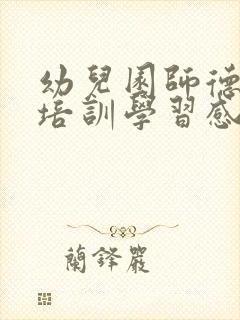 幼兒園師德
培訓學習感
蘭鐸嚴